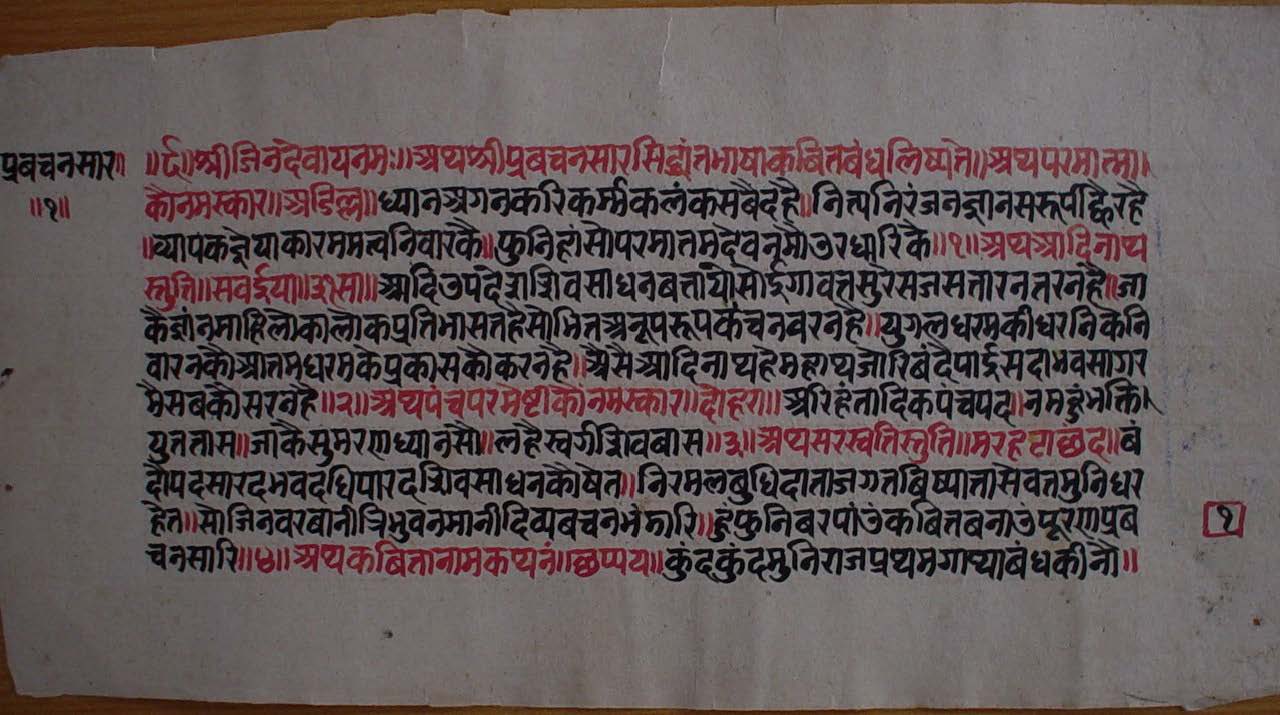 प्रबचनसार॥
॥१॥
॥र्द॥श्रीजिनंदेवायनमः॥अथश्रीप्रबचनसारसिद्धांतभाषाकबितबंधलिष्यते॥अथपरमात्मा।
कौनमस्कार॥अडिल्ल॥ध्यानअगनकरिकर्म्मकलंकसबैदहै॥नित्यनिरंजनज्ञानसरूपीह्वैरहै
॥व्यापकज्ञेयाकारममत्वनिवारकै॥फुनितांसौपरमातमदेवनमौउरधारिकै॥१॥अथआदिनाथ
स्तुति॥सवईया॥३१सा॥आदिउपदेशशिवसाधनबतायौसोईगावतसुरेसजसतारनतरनहै॥जा
कैज्ञांनमाहिलोकालोकप्रतिभासतहैसोभितअनूपरूपकंचनबरनहै॥युगलधरमकीधरनिकेनि
वारनकौआतमधरमकेप्रकासकौकरनहै॥अैसैआदिनाथहैमहाथजोरिबंदैपाईसदाभवसागर
मैसबकौसरनहै॥२॥अथपंचपरमेष्टीकौंनमस्कार॥दोहरा॥अरिहंतादिकपंचपद॥नमहुंभक्ति।
युततास॥जाकैसुमरणध्यानसौ॥लहैस्वर्गशिवबास॥३॥अथसरस्वतिस्तुति॥मरहटाछंद॥बं
दौपदसारदभवदधिपारदशिवसाधनकौषेत॥निरमलबुधिदाताजगतबिष्यातासेवतमुनिधर
हेत॥सोजिनवरबानीत्रिभुवनमानीदिव्यबचनभंडारि॥हुंफुनिबरपांउंकबितबनाउंपूरणप्रब
चनसारि॥४॥अथकबितानामकथनं॥छप्पय॥कुंदकुंदमुनिराजप्रथमगाथाबंधकीनौ॥
१